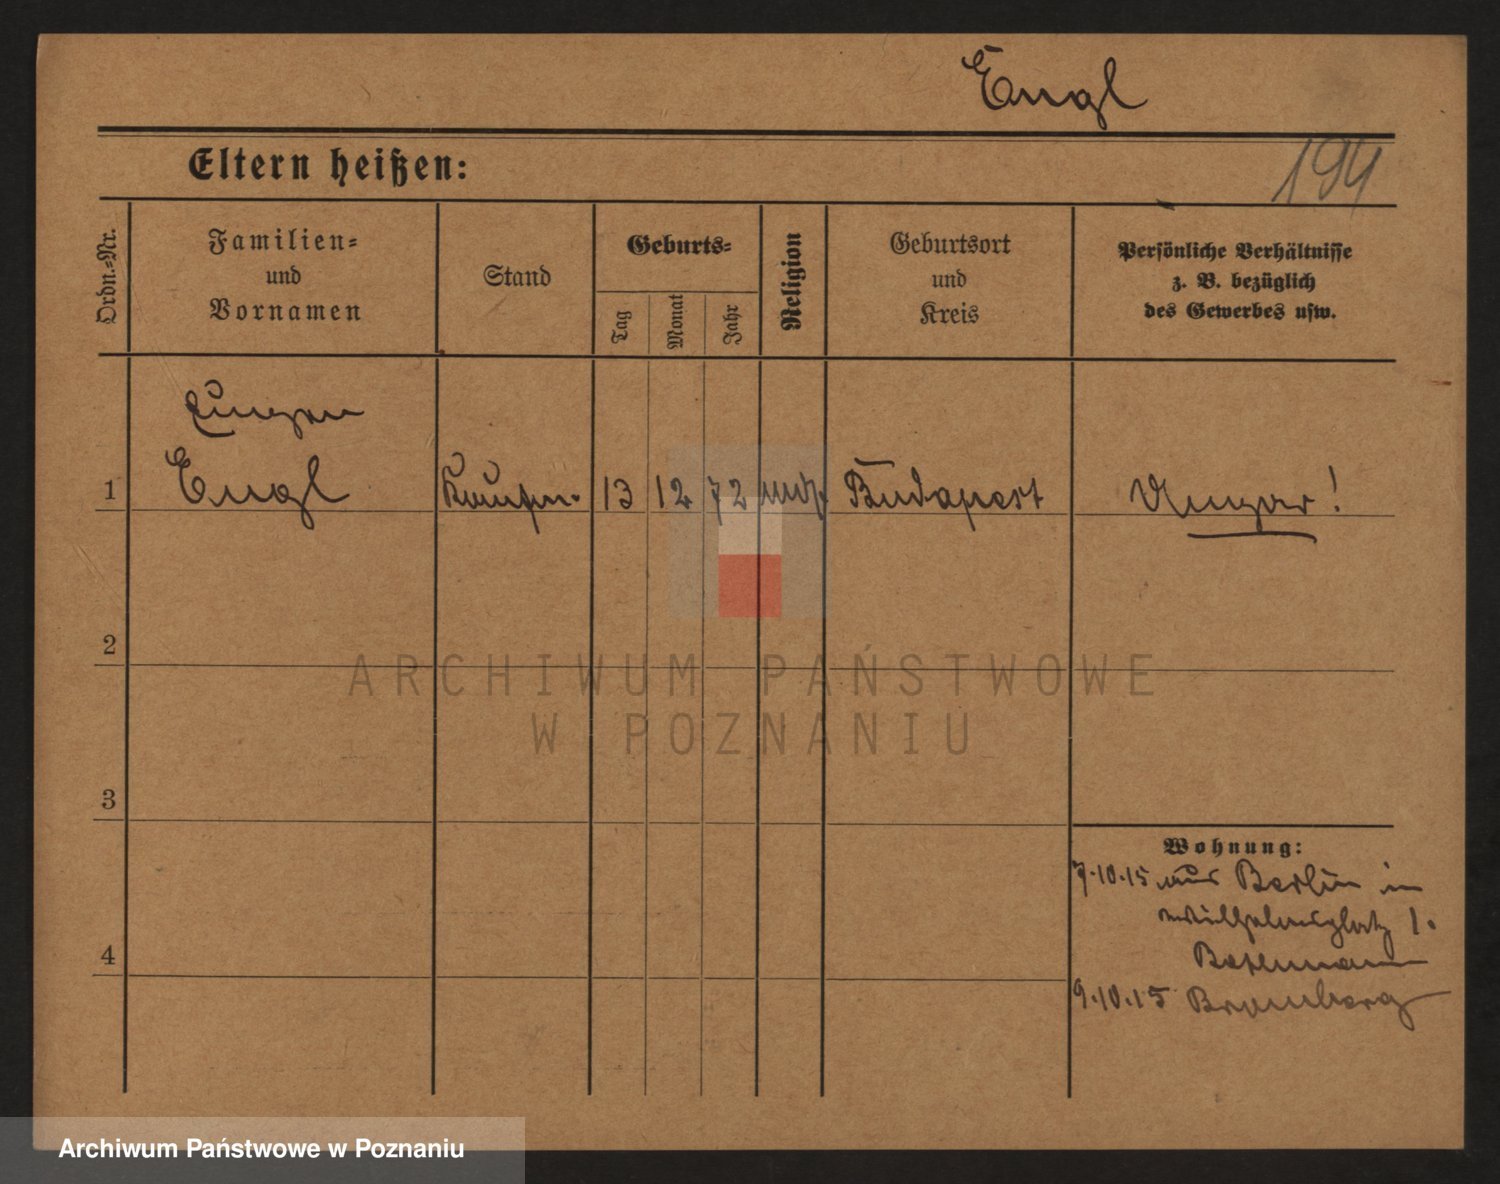 Engl
Eltern heißen:
194
Ordn.-Nr.
Familien-
und
Vornamen
Stand
Geburts-
Tag
Monat
Jahr
Religion
Geburtsort
und
Kreis
Persönliche Verhältnisse
z. B. bezüglich
des Gewerbes usw.
Eugen
1 Engl Kaufm. 13 12 72 Budapest Ungar!
2
ARCHIWUM PAŃSTWOWE
W POZNANIU
3
Wohnung:
7.10.15 aus Berlin in
Wilhelmsplatz 1.
4
9.10.15 Bromberg
Archiwum Państwowe w Poznaniu